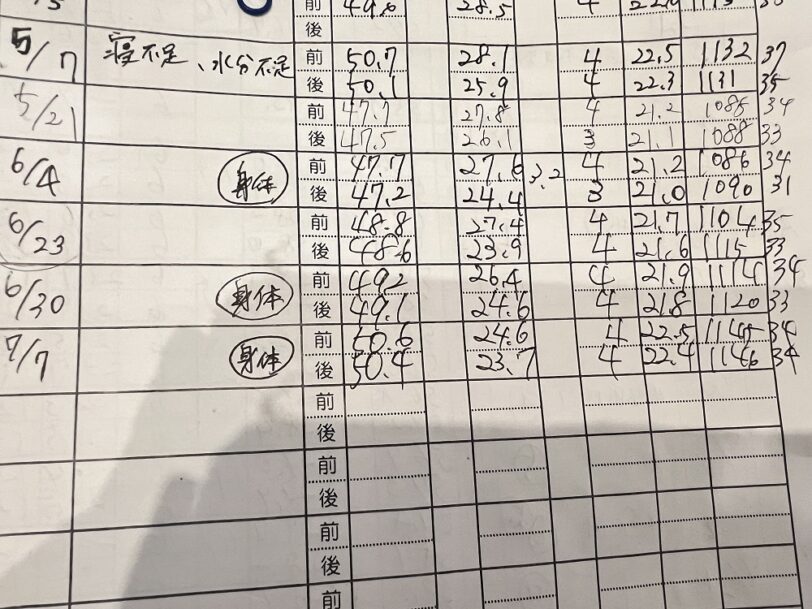 前 49.6 28.5 4
後
5/7 寝不足、水分不足 前 50.7 28.1 4 22.5 1132 37
後 50.1 25.9 4 22.3 1131 35
5/21 前 47.7 27.8 4 21.2 1085 34
後 47.5 26.1 3 21.1 1088 33
6/4 身体 前 47.7 27.6 3.2 4 21.2 1086 34
後 47.2 24.4 3 21.0 1090 31
6/23 前 48.8 27.4 4 21.7 1104 35
後 48.6 23.9 4 21.6 1115 33
6/30 身体 前 49.2 26.4 4 21.9 1114 34
後 49.1 24.6 4 21.8 1120 33
7/7 身体 前 50.6 24.6 4 22.5 1145 34
後 50.4 23.7 4 22.4 1146 34
前
後
前
後
前
後
前